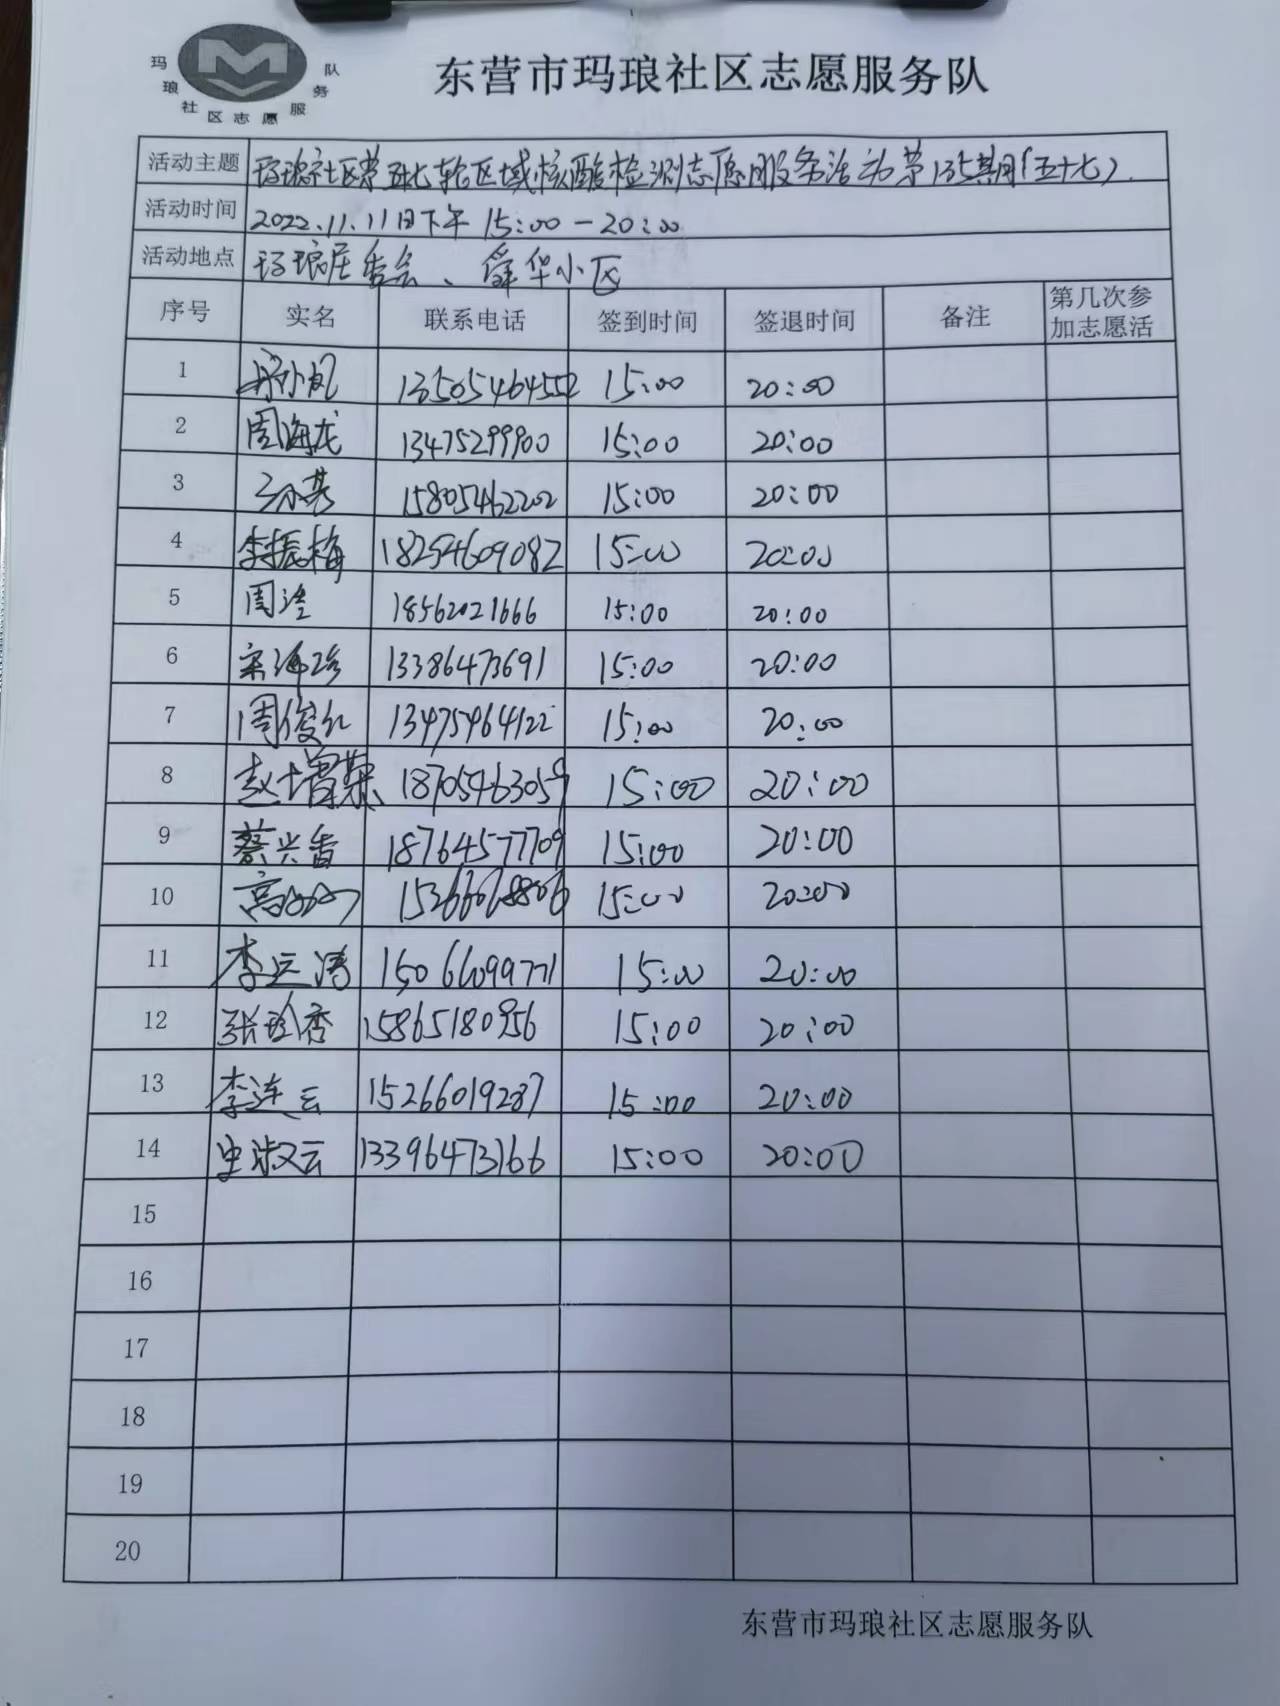 玛琅社区志愿服务队
东营市玛琅社区志愿服务队
活动主题 玛琅社区第五十七轮区域核酸检测志愿服务活动第135期(五十七)
活动时间 2022.11.11日下午 15:00-20:00
活动地点 玛琅居委会、舜华小区
序号 实名 联系电话 签到时间 签退时间 备注 第几次参加志愿活
1 13505464552 15:00 20:00
2 周海龙 13475299900 15:00 20:00
3 15805462202 15:00 20:00
4 李振梅 18254609082 15:00 20:00
5 周滢 18562021666 15:00 20:00
6 宋海珍 13386473691 15:00 20:00
7 周俊红 13475464122 15:00 20:00
8 赵增荣 18705463059 15:00 20:00
9 蔡兴香 18764577709 15:00 20:00
10 15:00 20:00
11 李云涛 15066099771 15:00 20:00
12 张珍香 15865180956 15:00 20:00
13 李连云 15266019287 15:00 20:00
14 史淑云 13396473166 15:00 20:00
15
16
17
18
19
20
东营市玛琅社区志愿服务队